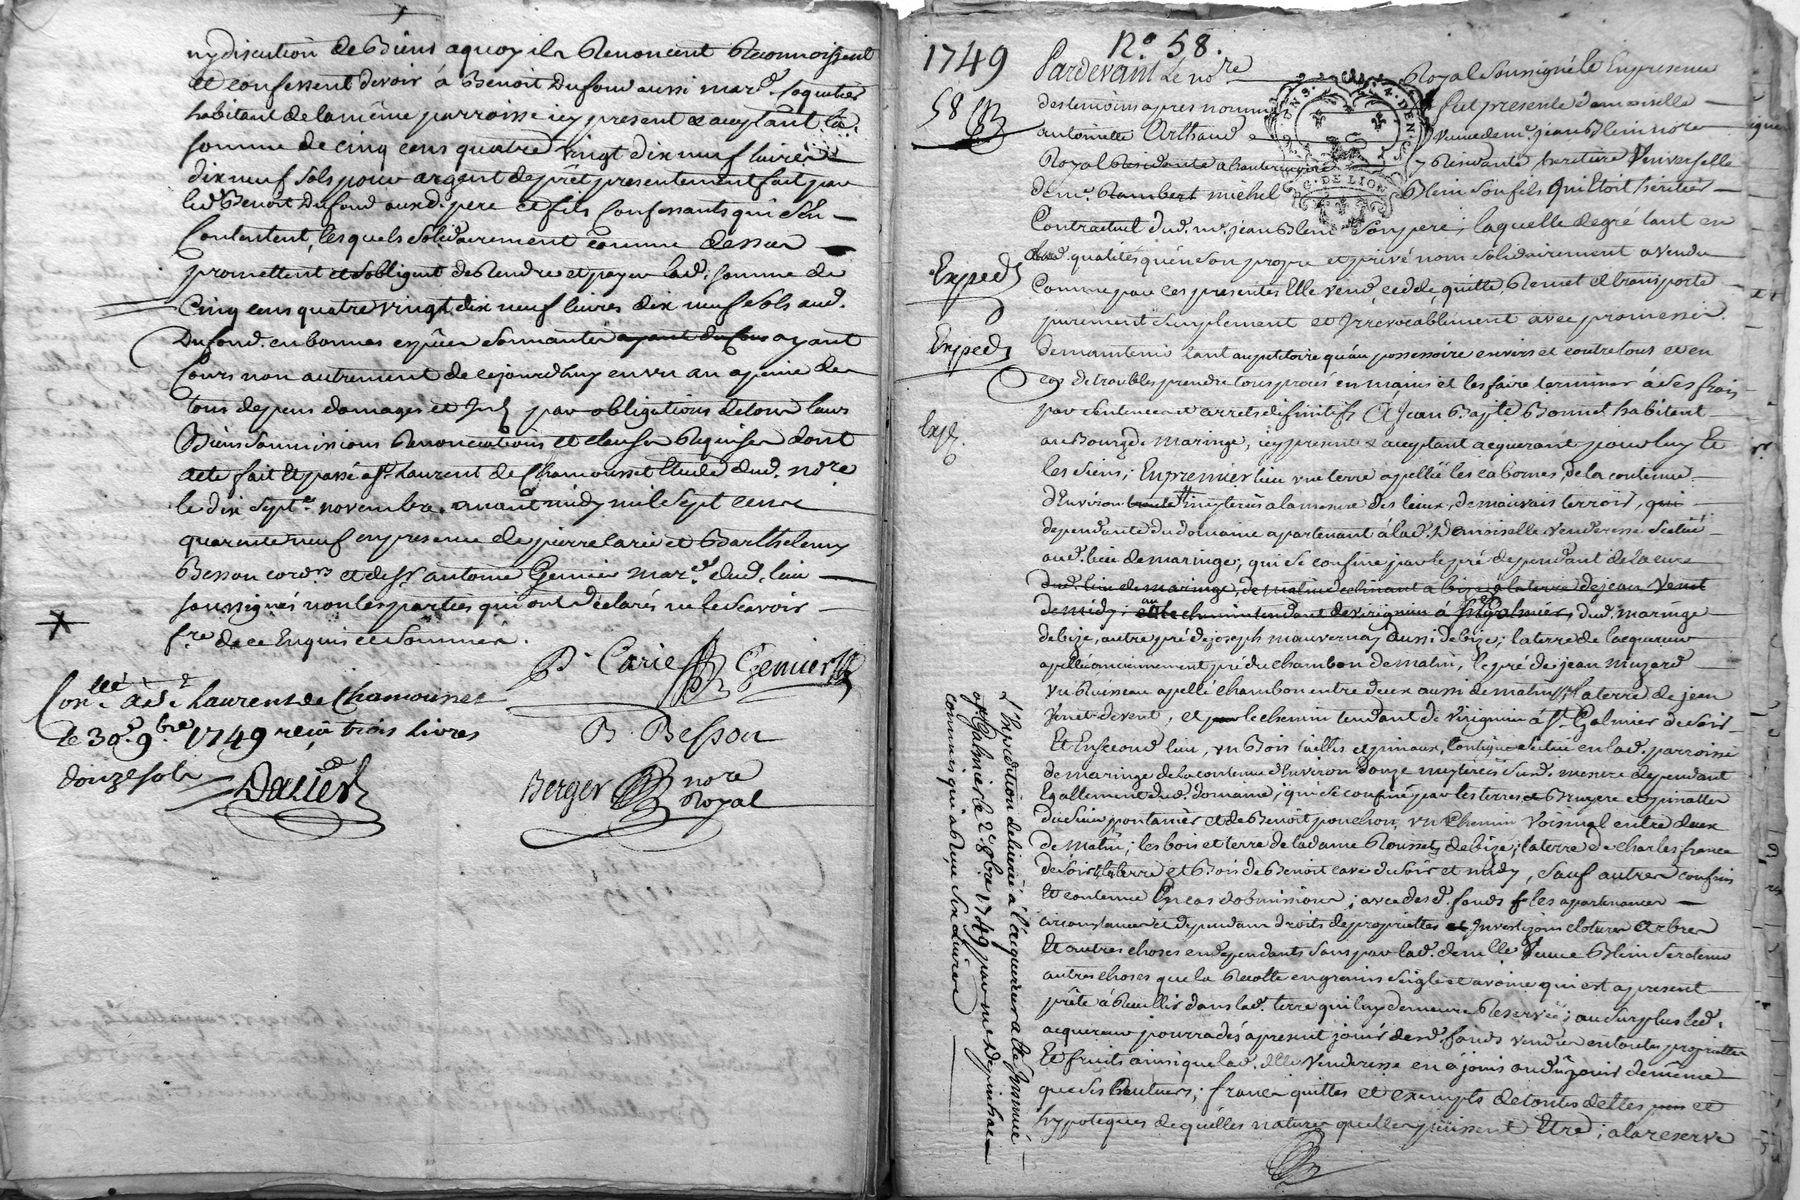 ny discution de Biens a quoy ils Renoncent Reconnoissent
et confessent devoir à Benoit Dufour aussi mar.d
habitant de la même parroisse icy present et aceptant la
somme de cinq cens quatre vingt dix neuf livres
dix neuf sols pour argent de prêt presentement fait par
led. Benoit Dufour auxd. pere et fils Confessants qui s'en
Contentent, lesquels solidairement comme dessus
promettent et s'obligent de Rendre et payer lad. somme de
Cinq cens quatre vingt dix neuf livres dix neuf sols aud.
Dufour en bonnes espèces sonnantes ayant
Cours non autrement de ce jourd'huy en un an a peine de
tous depens domages et par obligations de tous leurs
Biens soumissions Renonciations et clauses Requises dont
acte fait et passé a St. Laurent de Chamousset Etude dud. nore
le dix sept.e novembre avant midy mil sept cens
quarante neuf en presence de pierre Carie et Barthelemy
Besson cord.rs et de Sr. antoine Genier mar.d dud. lieu
soussignés non les parties qui ont déclarés ne le scavoir
f.re de ce Enquis et Sommés.
P. Carie Genier
Con.lé à St. Laurent de Chamousset
le 30.e 9.bre 1749 reçu trois livres
B. Besson
douze sols
Dalier
Berger nore Royal
1749
No. 58.
58
Pardevant Le nore Royal soussigné et En presence
des temoins apres nommés fut presente demoiselle
antoinette Arthaud Veuve de me. jean Blein nore
Royal Residante a hauterivoire Heritière Universelle
de me. Rambert michel Blein son fils qui Etoit héritier
Contractuel dud. me. jean Blein son pere; laquelle de gré tant en
lad. qualités qu'en son propre et privé nom solidairement a vendu
Comme par ces presentes Elle vend, cedde, quitte, Remet et transporte
purement simplement et Irrevocablement avec promesse
Exped
de maintenir tant au petitoire qu'au possessoire envers et contre tous et en
Exped
cas de troubles prendre tous procés en mains et les faire terminer à ses frais
par sentences et arrets definitifs A Jean Bapte. Bonnet habitant
Exp.
au Bourg de maringe, icy present et aceptant acquerant pour luy et
les siens; En premier lieu une terre apellée les cabornes, de la contenue
d'Environ meyterées a la mesure des lieux, de mauvais terroir,
dependante du domaine apartenant à lad. Demoiselle venderesse situé
aud. lieu de maringe; qui se confine par le pré dependant de la cure
dud. lieu de maringe, de matin la terre de jean Venet
de midy; le chemin tendant de Virignieu à St. Galmier, dud. maringe
de bize, autre pré de joseph mauvernay aussi de bize; la terre de lacquereur
apellé anciennement pré du chambon de matin, le pré de jean muzard
un Ruisseau apellé chambon entre deux aussi de matin, la terre de jean
Venet de vent, et par le chemin tendant de Virignieu à St. Galmier de soir
Et En second lieu, un Bois taillis et pinaux, contigue situé en lad. parroisse
de maringe de la contenue d'Environ douze meyterées susd. mesure dependant
Egallement dud. domaine; qui se confine par les terres et Bruyere et pinattes
du sieur pontanier et de Benoit ponchon, un Chemin Voisinal entre deux
de matin; les bois et terre de la dame Rousset de bize; la terre de Charles france
de soir; la terre et Bois de Benoit cave du soir et midy, sauf autres confins
et contenue En cas d'obmission; avec desd. fonds les apartenances
circonstances et dependances droits de proprietés et Investizons clotures Arbres
Et autres choses en dependants sans par lad. demlle Veuve Blein se retenir
autres choses que la Recolte en grains seigle et avoine qui est a present
prête à Recüellir dans lad. terre qui luy demeure Reservée; au surplus led.
acquereur pourra dés a present jouir desd. fonds vendus en toutes proprietés
Et fruits ainsi que lad. dlle Venderesse en a joui ou dû jouir de même
que ses Auteurs; francs quittes et exempts de toutes dettes et
hypoteques de quelles natures quelles puissent Etre; a la reserve
L'Expedition delivrée à l'acquereur a Eté
St. Galmier le 2e 8bre 1749 par me Depinhac
commis qui a Reçu Six Livres